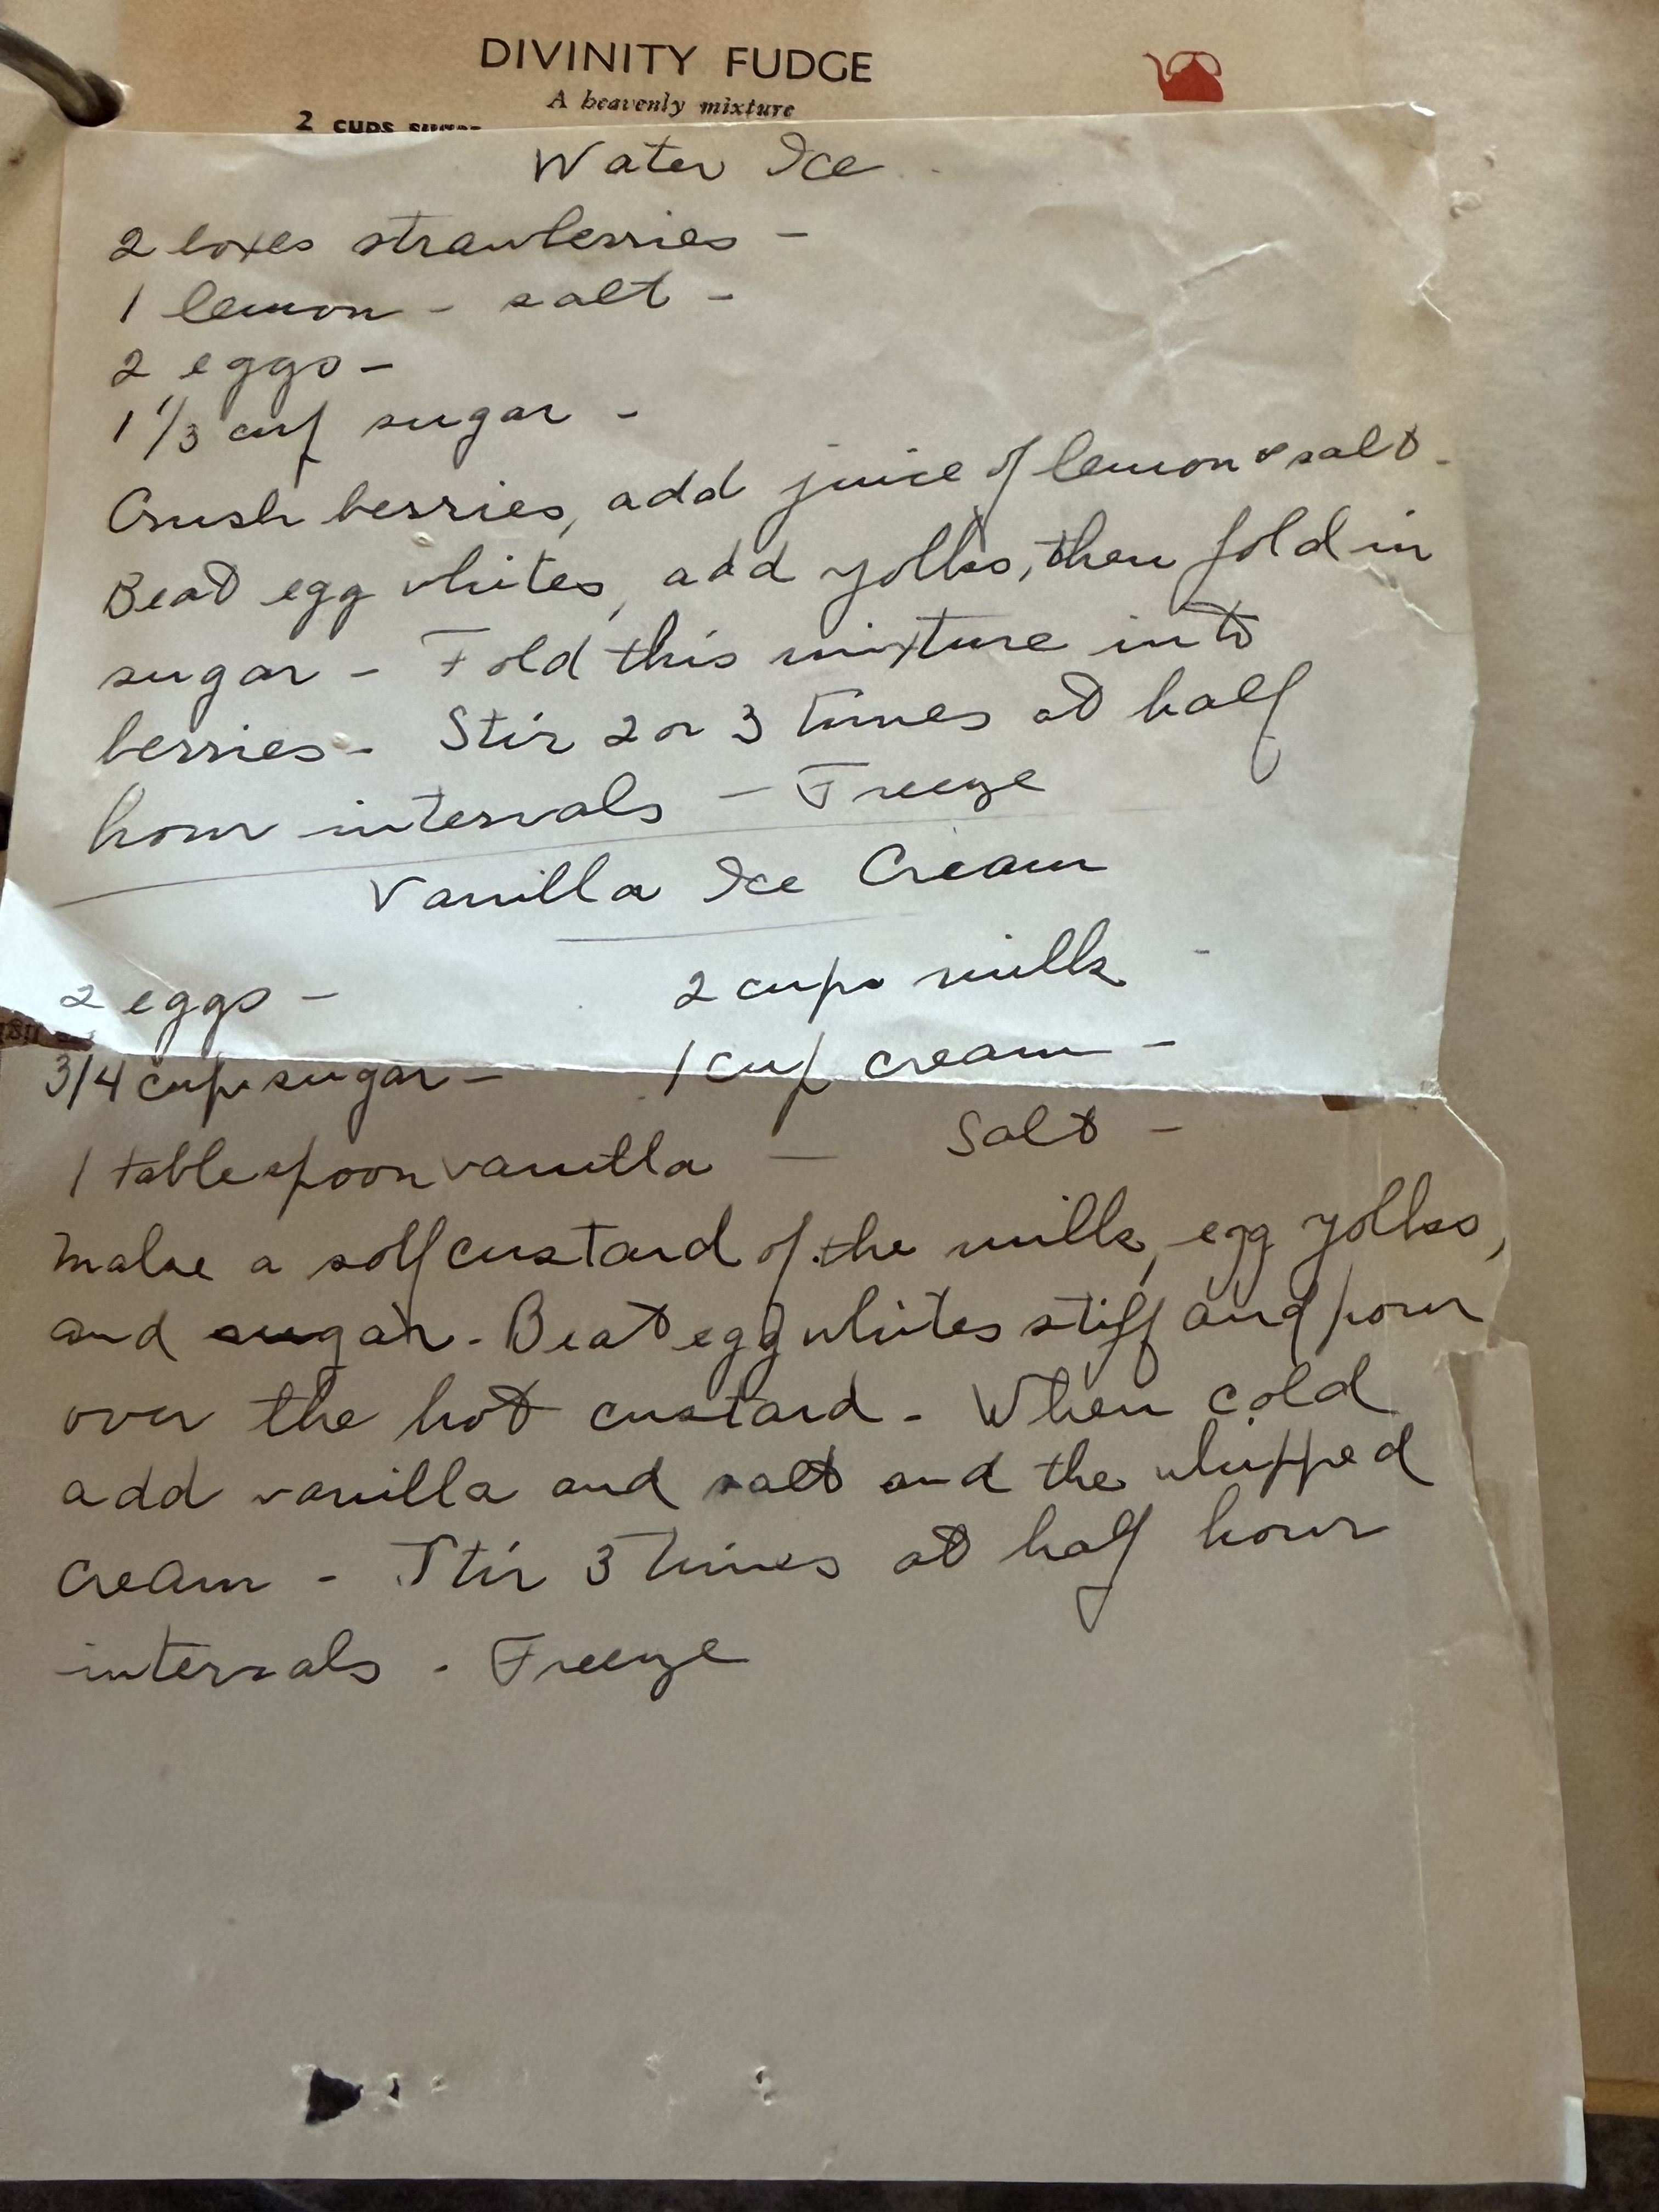 DIVINITY FUDGE
A heavenly mixture
2 CUPS SUGAR
Water Ice
2 boxes strawberries -
1 lemon - salt -
2 eggs -
1 1/3 cup sugar -
Crush berries, add juice of lemon & salt -
Beat egg whites, add yolks, then fold in
sugar - Fold this mixture into
berries - Stir 2 or 3 times at half
hour intervals - Freeze
Vanilla Ice Cream
2 eggs - 2 cups milk -
3/4 cup sugar - 1 cup cream -
1 tablespoon vanilla - Salt -
Make a soft custard of the milk, egg yolks,
and sugar - Beat egg whites stiff and pour
over the hot custard - When cold
add vanilla and salt and the whipped
cream - Stir 3 times at half hour
intervals - Freeze